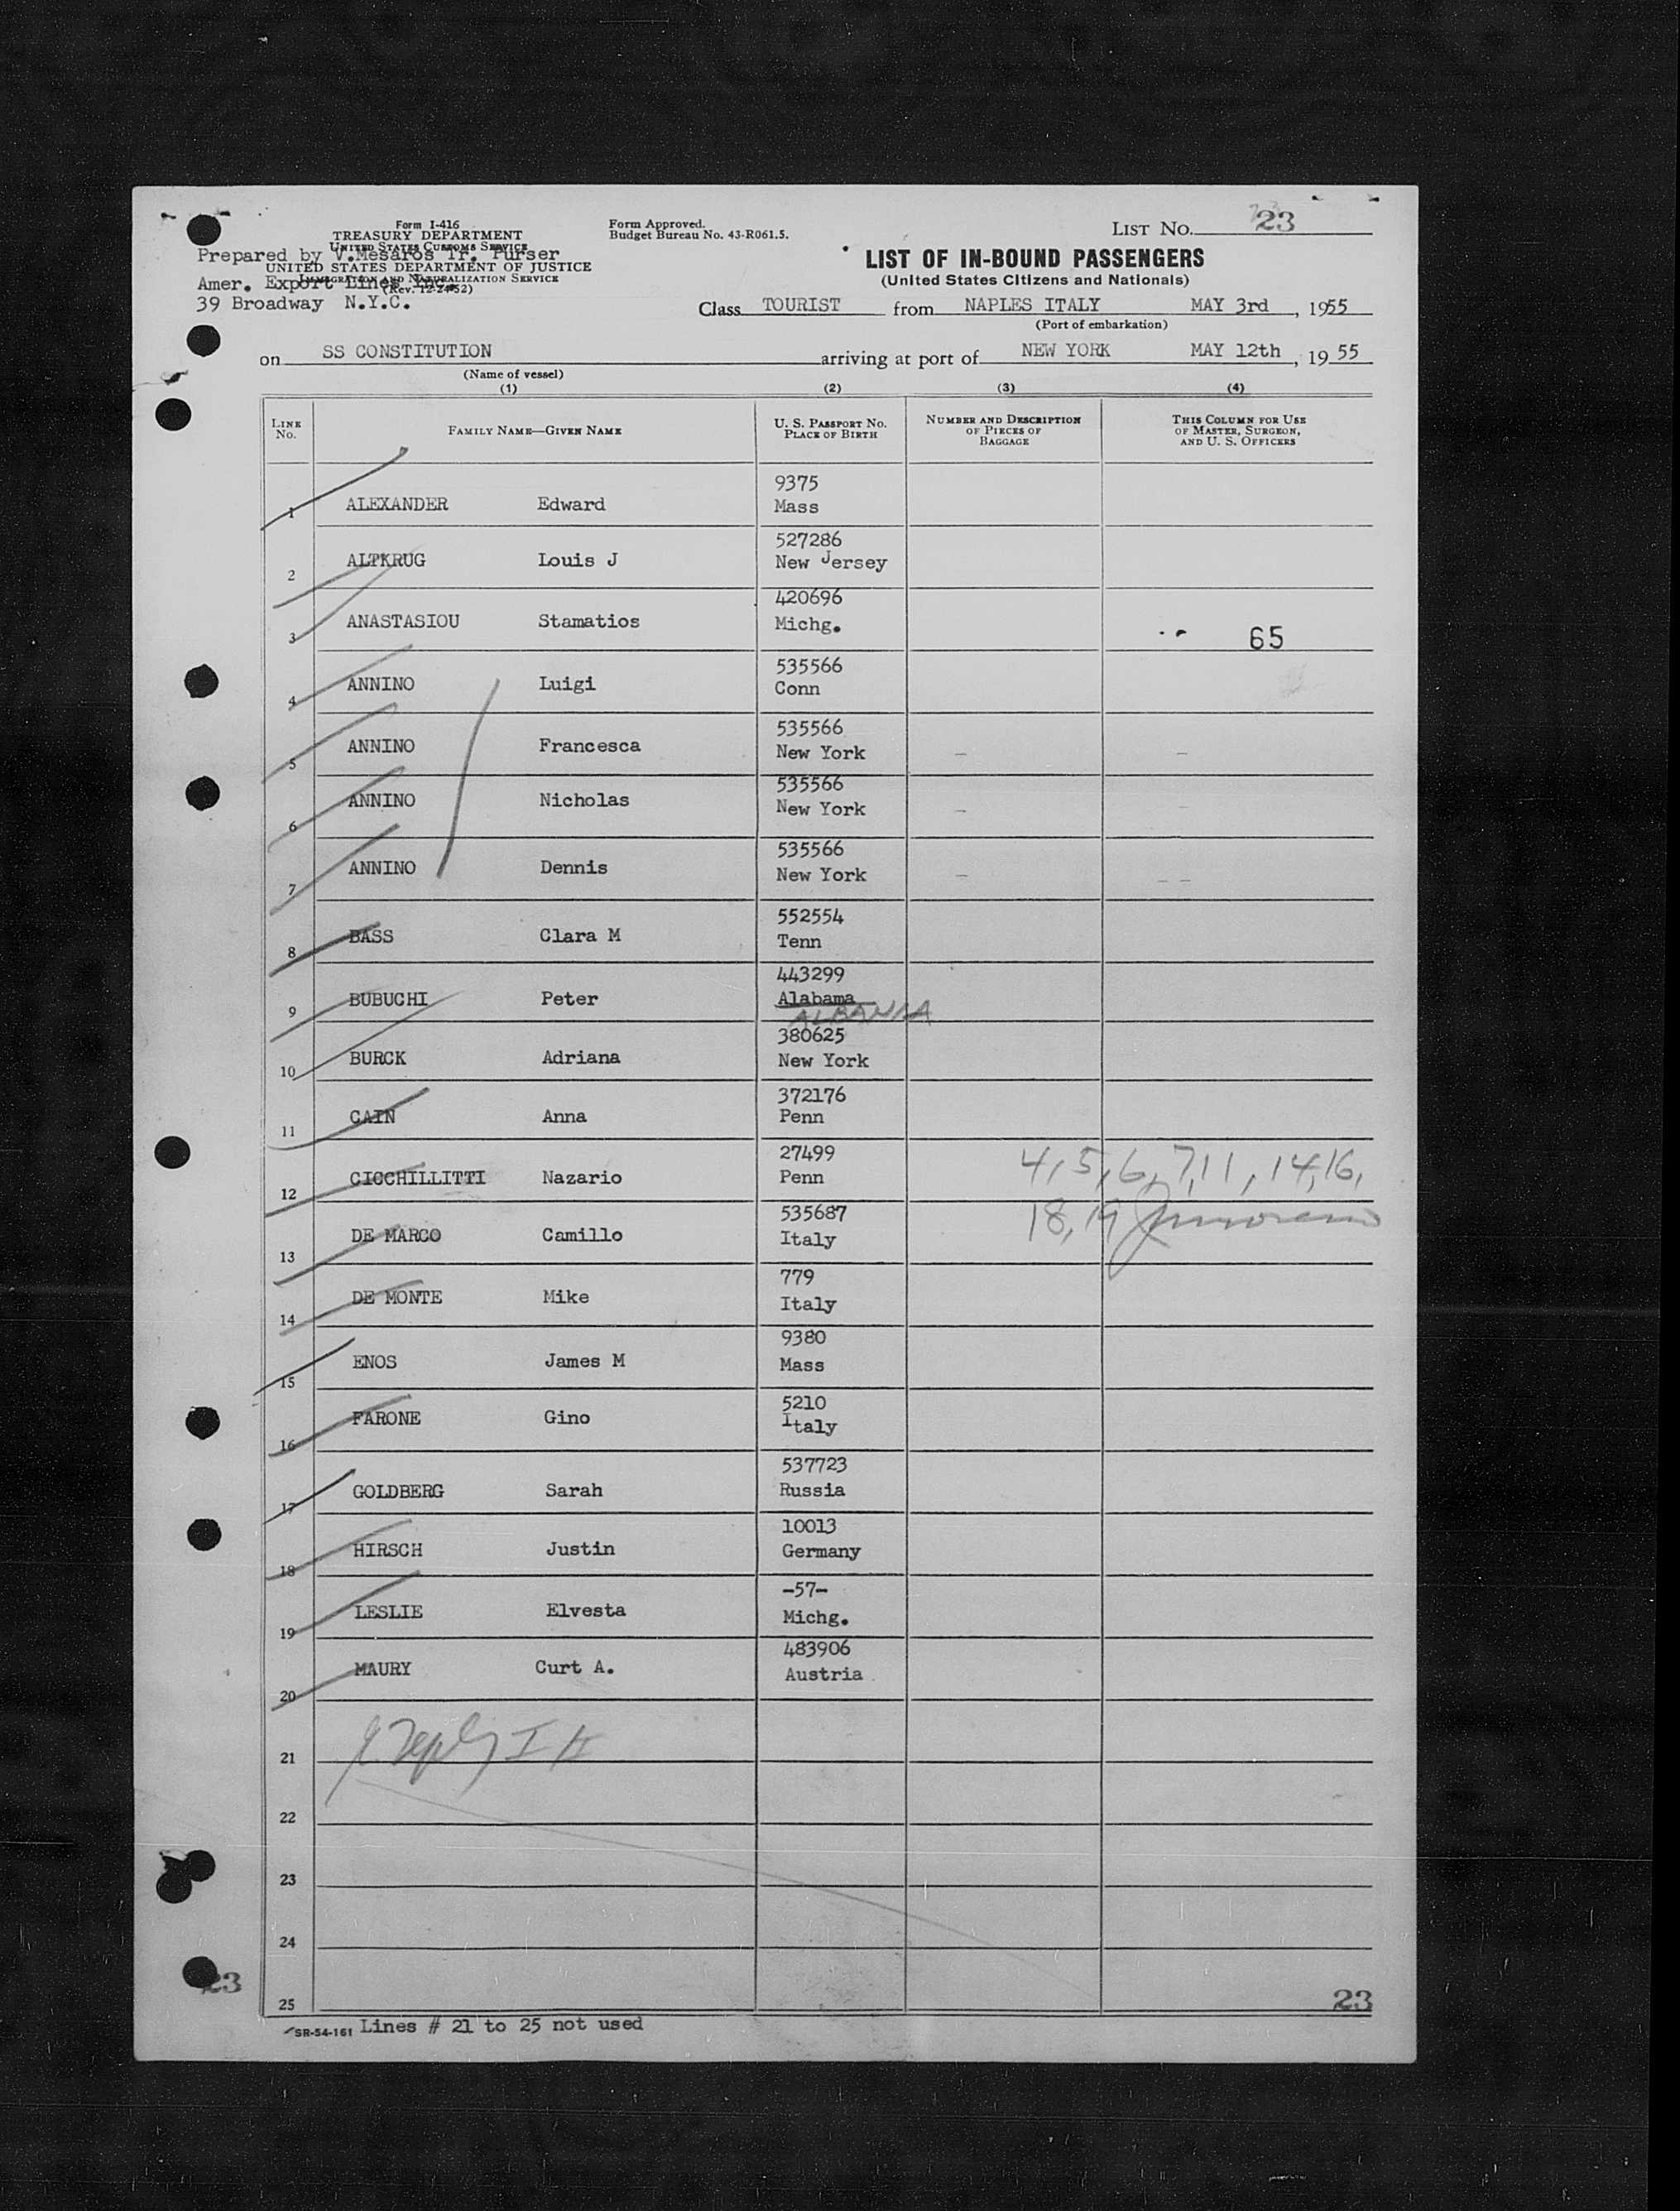 Form I-416
TREASURY DEPARTMENT
UNITED STATES CUSTOMS SERVICE
Prepared by V.Mesaros Tr. Purser
UNITED STATES DEPARTMENT OF JUSTICE
IMMIGRATION AND NATURALIZATION SERVICE
Amer. Export Lines Inc.
(Rev. 12-24-52)
39 Broadway N.Y.C.
Form Approved.
Budget Bureau No. 43-R061.5.
LIST No. 23
LIST OF IN-BOUND PASSENGERS
(United States Citizens and Nationals)
Class TOURIST from NAPLES ITALY MAY 3rd, 1955
(Port of embarkation)
on SS CONSTITUTION arriving at port of NEW YORK MAY 12th, 19 55
(Name of vessel)
(1) (2) (3) (4)
LINE No. FAMILY NAME—GIVEN NAME U. S. PASSPORT No. PLACE OF BIRTH NUMBER AND DESCRIPTION OF PIECES OF BAGGAGE THIS COLUMN FOR USE OF MASTER, SURGEON, AND U. S. OFFICERS
1 ALEXANDER Edward 9375 Mass
2 ALTKRUG Louis J 527286 New Jersey
3 ANASTASIOU Stamatios 420696 Michg. 65
4 ANNINO Luigi 535566 Conn
5 ANNINO Francesca 535566 New York
6 ANNINO Nicholas 535566 New York
7 ANNINO Dennis 535566 New York
8 BASS Clara M 552554 Tenn
9 BUBUCHI Peter 443299 Alabama ALBANIA
10 BURCK Adriana 380625 New York
11 CAIN Anna 372176 Penn
12 CICCHILLITTI Nazario 27499 Penn 4,5,6,7,11,14,16,
13 DE MARCO Camillo 535687 Italy 18,19
14 DE MONTE Mike 779 Italy
15 ENOS James M 9380 Mass
16 FARONE Gino 5210 Italy
17 GOLDBERG Sarah 537723 Russia
18 HIRSCH Justin 10013 Germany
19 LESLIE Elvesta -57- Michg.
20 MAURY Curt A. 483906 Austria
21
22
23
24
25
23
23
SR-54-161 Lines # 21 to 25 not used